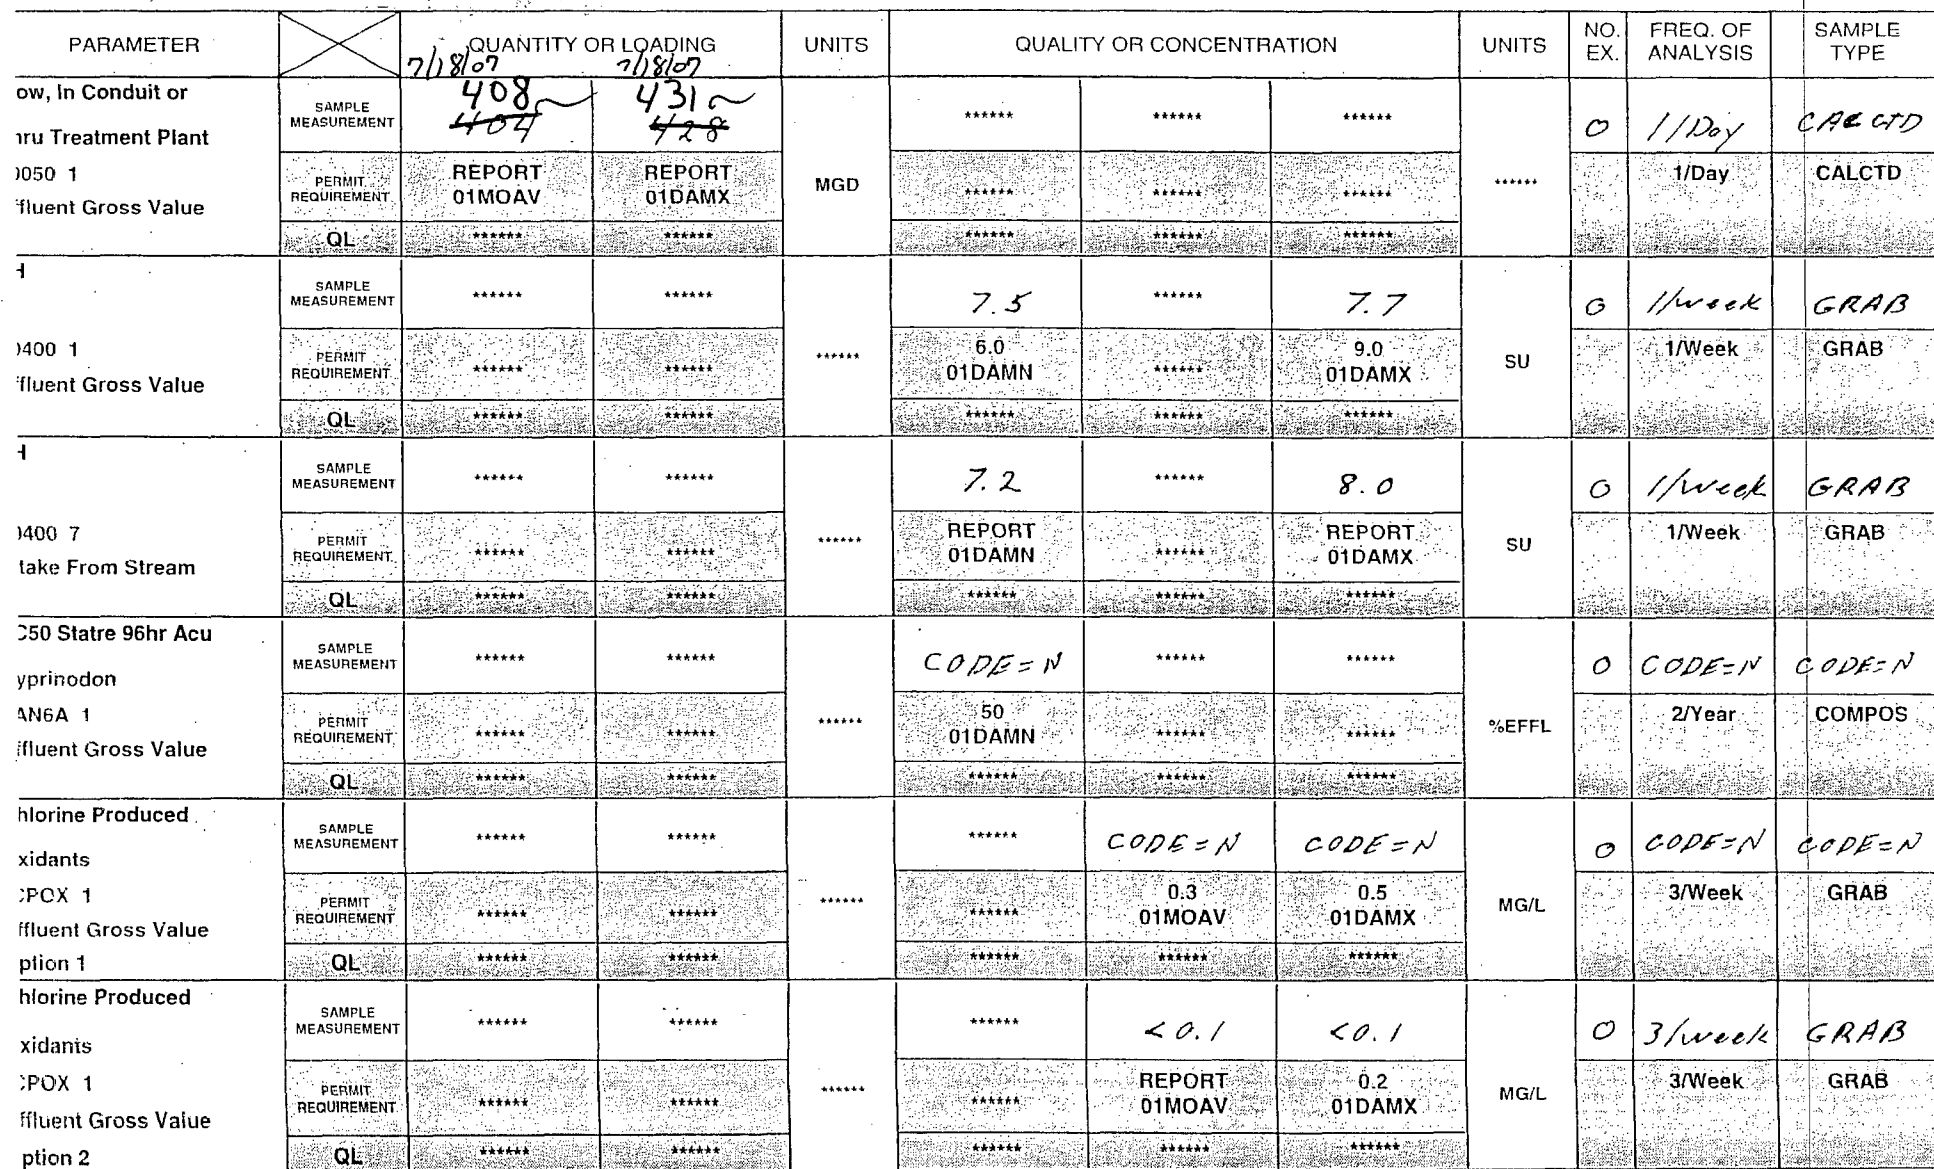 PARAMETER QUANTITY OR LOADING UNITS QUALITY OR CONCENTRATION UNITS NO. EX. FREQ. OF ANALYSIS SAMPLE TYPE
7/18/07 7/18/07
ow, In Conduit or
hru Treatment Plant
0050 1
ffluent Gross Value
SAMPLE MEASUREMENT 408 431 ****** ****** ****** 0 1/Day CALCTD
404 428
PERMIT REQUIREMENT REPORT 01MOAV REPORT 01DAMX MGD ****** ****** ****** ****** 1/Day CALCTD
QL ****** ****** ****** ****** ******
H
0400 1
ffluent Gross Value
SAMPLE MEASUREMENT ****** ****** 7.5 ****** 7.7 0 1/week GRAB
PERMIT REQUIREMENT ****** ****** ****** 6.0 01DAMN ****** 9.0 01DAMX SU 1/Week GRAB
QL ****** ****** ****** ****** ******
H
0400 7
take From Stream
SAMPLE MEASUREMENT ****** ****** 7.2 ****** 8.0 0 1/week GRAB
PERMIT REQUIREMENT ****** ****** ****** REPORT 01DAMN ****** REPORT 01DAMX SU 1/Week GRAB
QL ****** ****** ****** ****** ******
C50 Statre 96hr Acu
yprinodon
AN6A 1
ffluent Gross Value
SAMPLE MEASUREMENT ****** ****** CODE=N ****** ****** 0 CODE=N CODE=N
PERMIT REQUIREMENT ****** ****** ****** 50 01DAMN ****** ****** %EFFL 2/Year COMPOS
QL ****** ****** ****** ****** ******
hlorine Produced
xidants
CPOX 1
ffluent Gross Value
ption 1
SAMPLE MEASUREMENT ****** ****** ****** CODE=N CODE=N 0 CODE=N CODE=N
PERMIT REQUIREMENT ****** ****** ****** ****** 0.3 01MOAV 0.5 01DAMX MG/L 3/Week GRAB
QL ****** ****** ****** ****** ******
hlorine Produced
xidants
CPOX 1
ffluent Gross Value
ption 2
SAMPLE MEASUREMENT ****** ****** ****** <0.1 <0.1 0 3/week GRAB
PERMIT REQUIREMENT ****** ****** ****** ****** REPORT 01MOAV 0.2 01DAMX MG/L 3/Week GRAB
QL ****** ****** ****** ****** ******